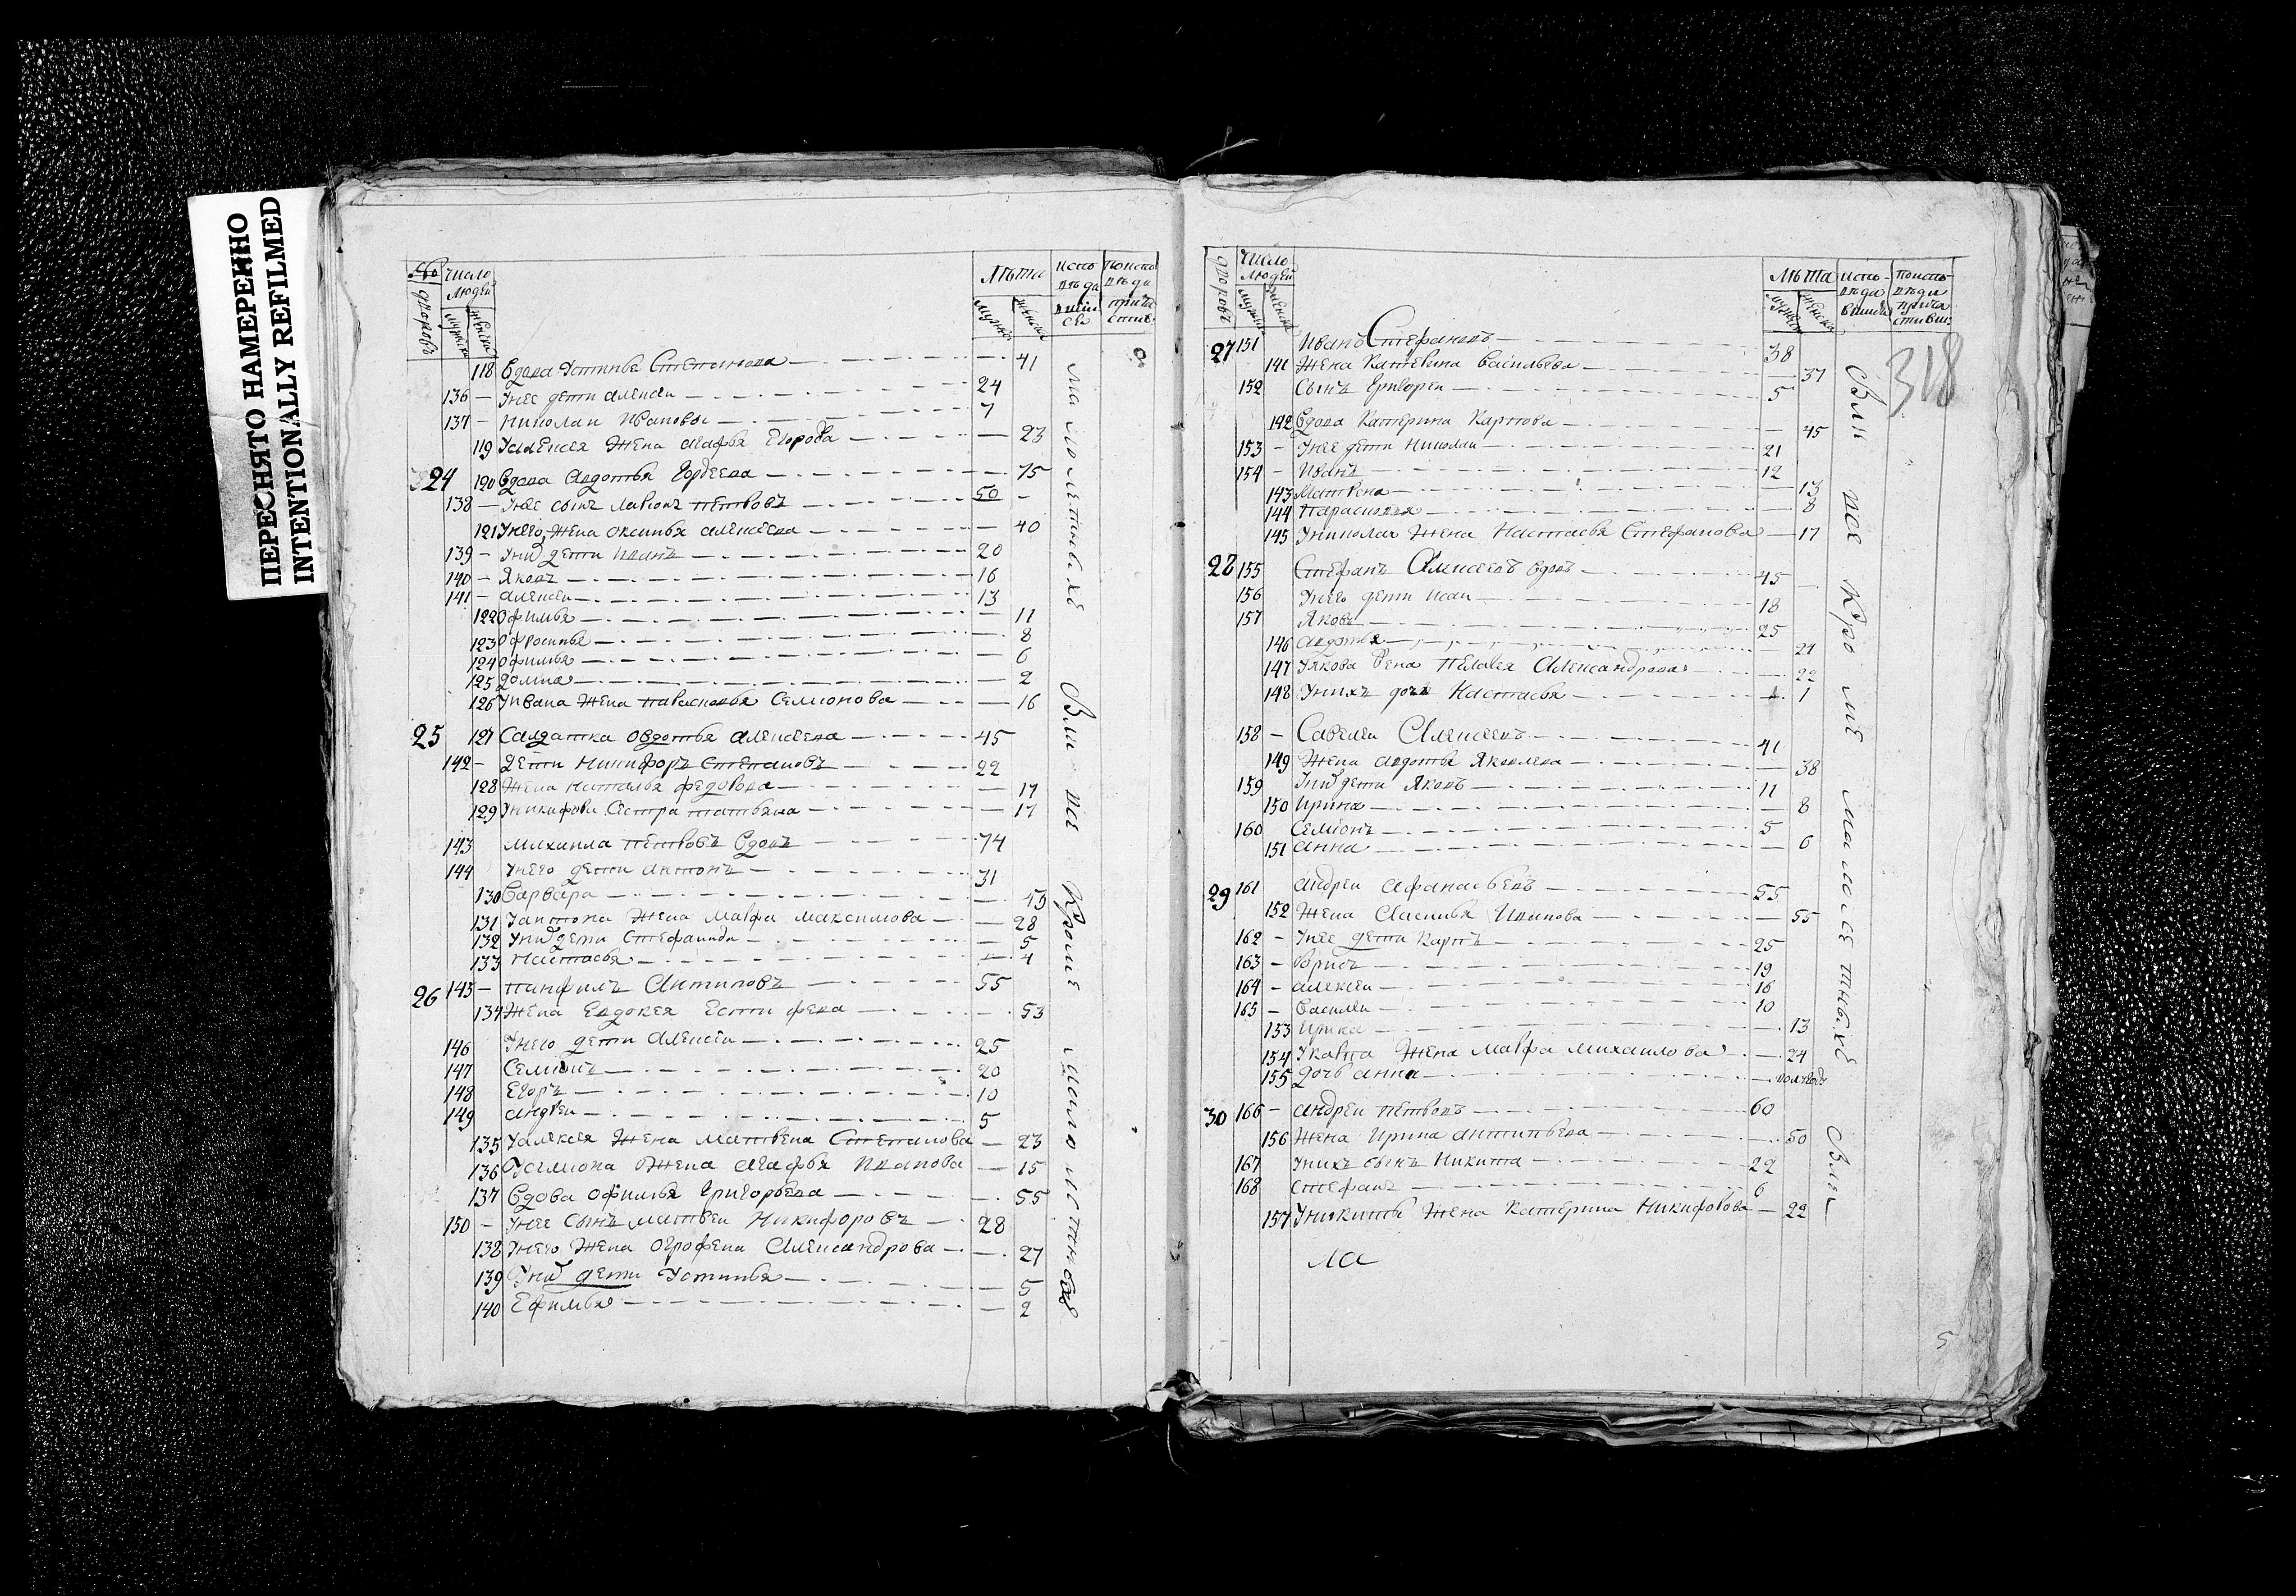 ПЕРЕСНЯТО НАМЕРЕННО
INTENTIONALLY REFILMED
№ дворовъ Число людей мужска женска Лѣта мужска женска Испо вѣда
118 Вдова Устинья Степанова 41
136 — Унее дети алексеи 24
137 — Николаи Ивановы 7
119 Уалексея Жена агафья Егорова 23
24 120 Вдова Авдотья Гордеева 75
138 — Унее сынъ Ларионъ петровъ 50
121 Унего Жена оксинья алексеева 40
139 — Унихъ дети Иванъ 20
140 — Яковъ 16
141 — алексеи 13
122 Офимья 11
123 Офросинья 8
124 Офимья 6
125 Домна 2
126 Уивана Жена парасковья Семионова 16
25 127 Салдатка овдотья алексеева 45
142 — Дети Никифоръ степановъ 22
128 Жена наталья федорова 17
129 Уникифора Сестра татьяна 17
143 михаила петровъ вдовъ 74
144 Унего дети антонъ 31
130 Варвара 15
131 Уантона Жена мавра максимова 28
132 Унихъ дети Стефанида 5
133 Настасья 4
26 145 — панфилъ Антиповъ 55
134 Жена Евдокея Естифеева 53
146 Унего дети Алексеи 25
147 Семионъ 20
148 Егоръ 10
149 андреи 5
135 Уалексея Жена матрена Степанова 23
136 Усемиона Жена агафья Иванова 15
137 Вдова офимья Григорьева 55
150 — Унее Сынъ матвеи Никифоровъ 28
138 Унего Жена огрофена Александрова 27
139 Унихъ дети Устинья 5
140 Ефимья 2
малолетныхъ
Вли
Кроме малолетныхъ
дворовъ Число людей мужска женска Лѣта мужска женска Испо- вѣда
318
27 151 Иванъ Стефановъ 38
141 Жена Катерина васильева 37
152 Сынъ Григореи 5
142 Вдова Катерина Карпова 45
153 — Унее дети Николаи 21
154 — Иванъ 12
143 Матрена 13
144 Парасковья 8
145 Униколая Жена Настасья Стефанова 17
28 155 Стефанъ Алексеевъ вдовъ 45
156 Унего дети Исаи 18
157 Яковъ 25
146 авдотья 21
147 Уякова Жена пелагея Александрова 22
148 Унихъ дочь Настасья 1
158 — Савелеи Алексеевъ 41
149 Жена авдотья Яковлева 38
159 Унихъ дети Яковъ 11
150 Ирина 8
160 Семионъ 5
151 анна 6
29 161 андреи афанасьевъ 55
152 Жена Аксинья Иванова 55
162 — Унее дети карпъ 25
163 — Борисъ 19
164 — алексеи 16
165 — Василеи 10
153 Ирина 13
154 Укарпа Жена мавра михаилова 24
155 Дочь анна полгода
30 166 — андреи петровъ 60
156 Жена Ирина антипьева 50
167 Унихъ сынъ Никита 22
168 стефанъ 6
157 Уникиты Жена Катерина Никифорова 22
ла
Вли
Кроме малолетныхъ